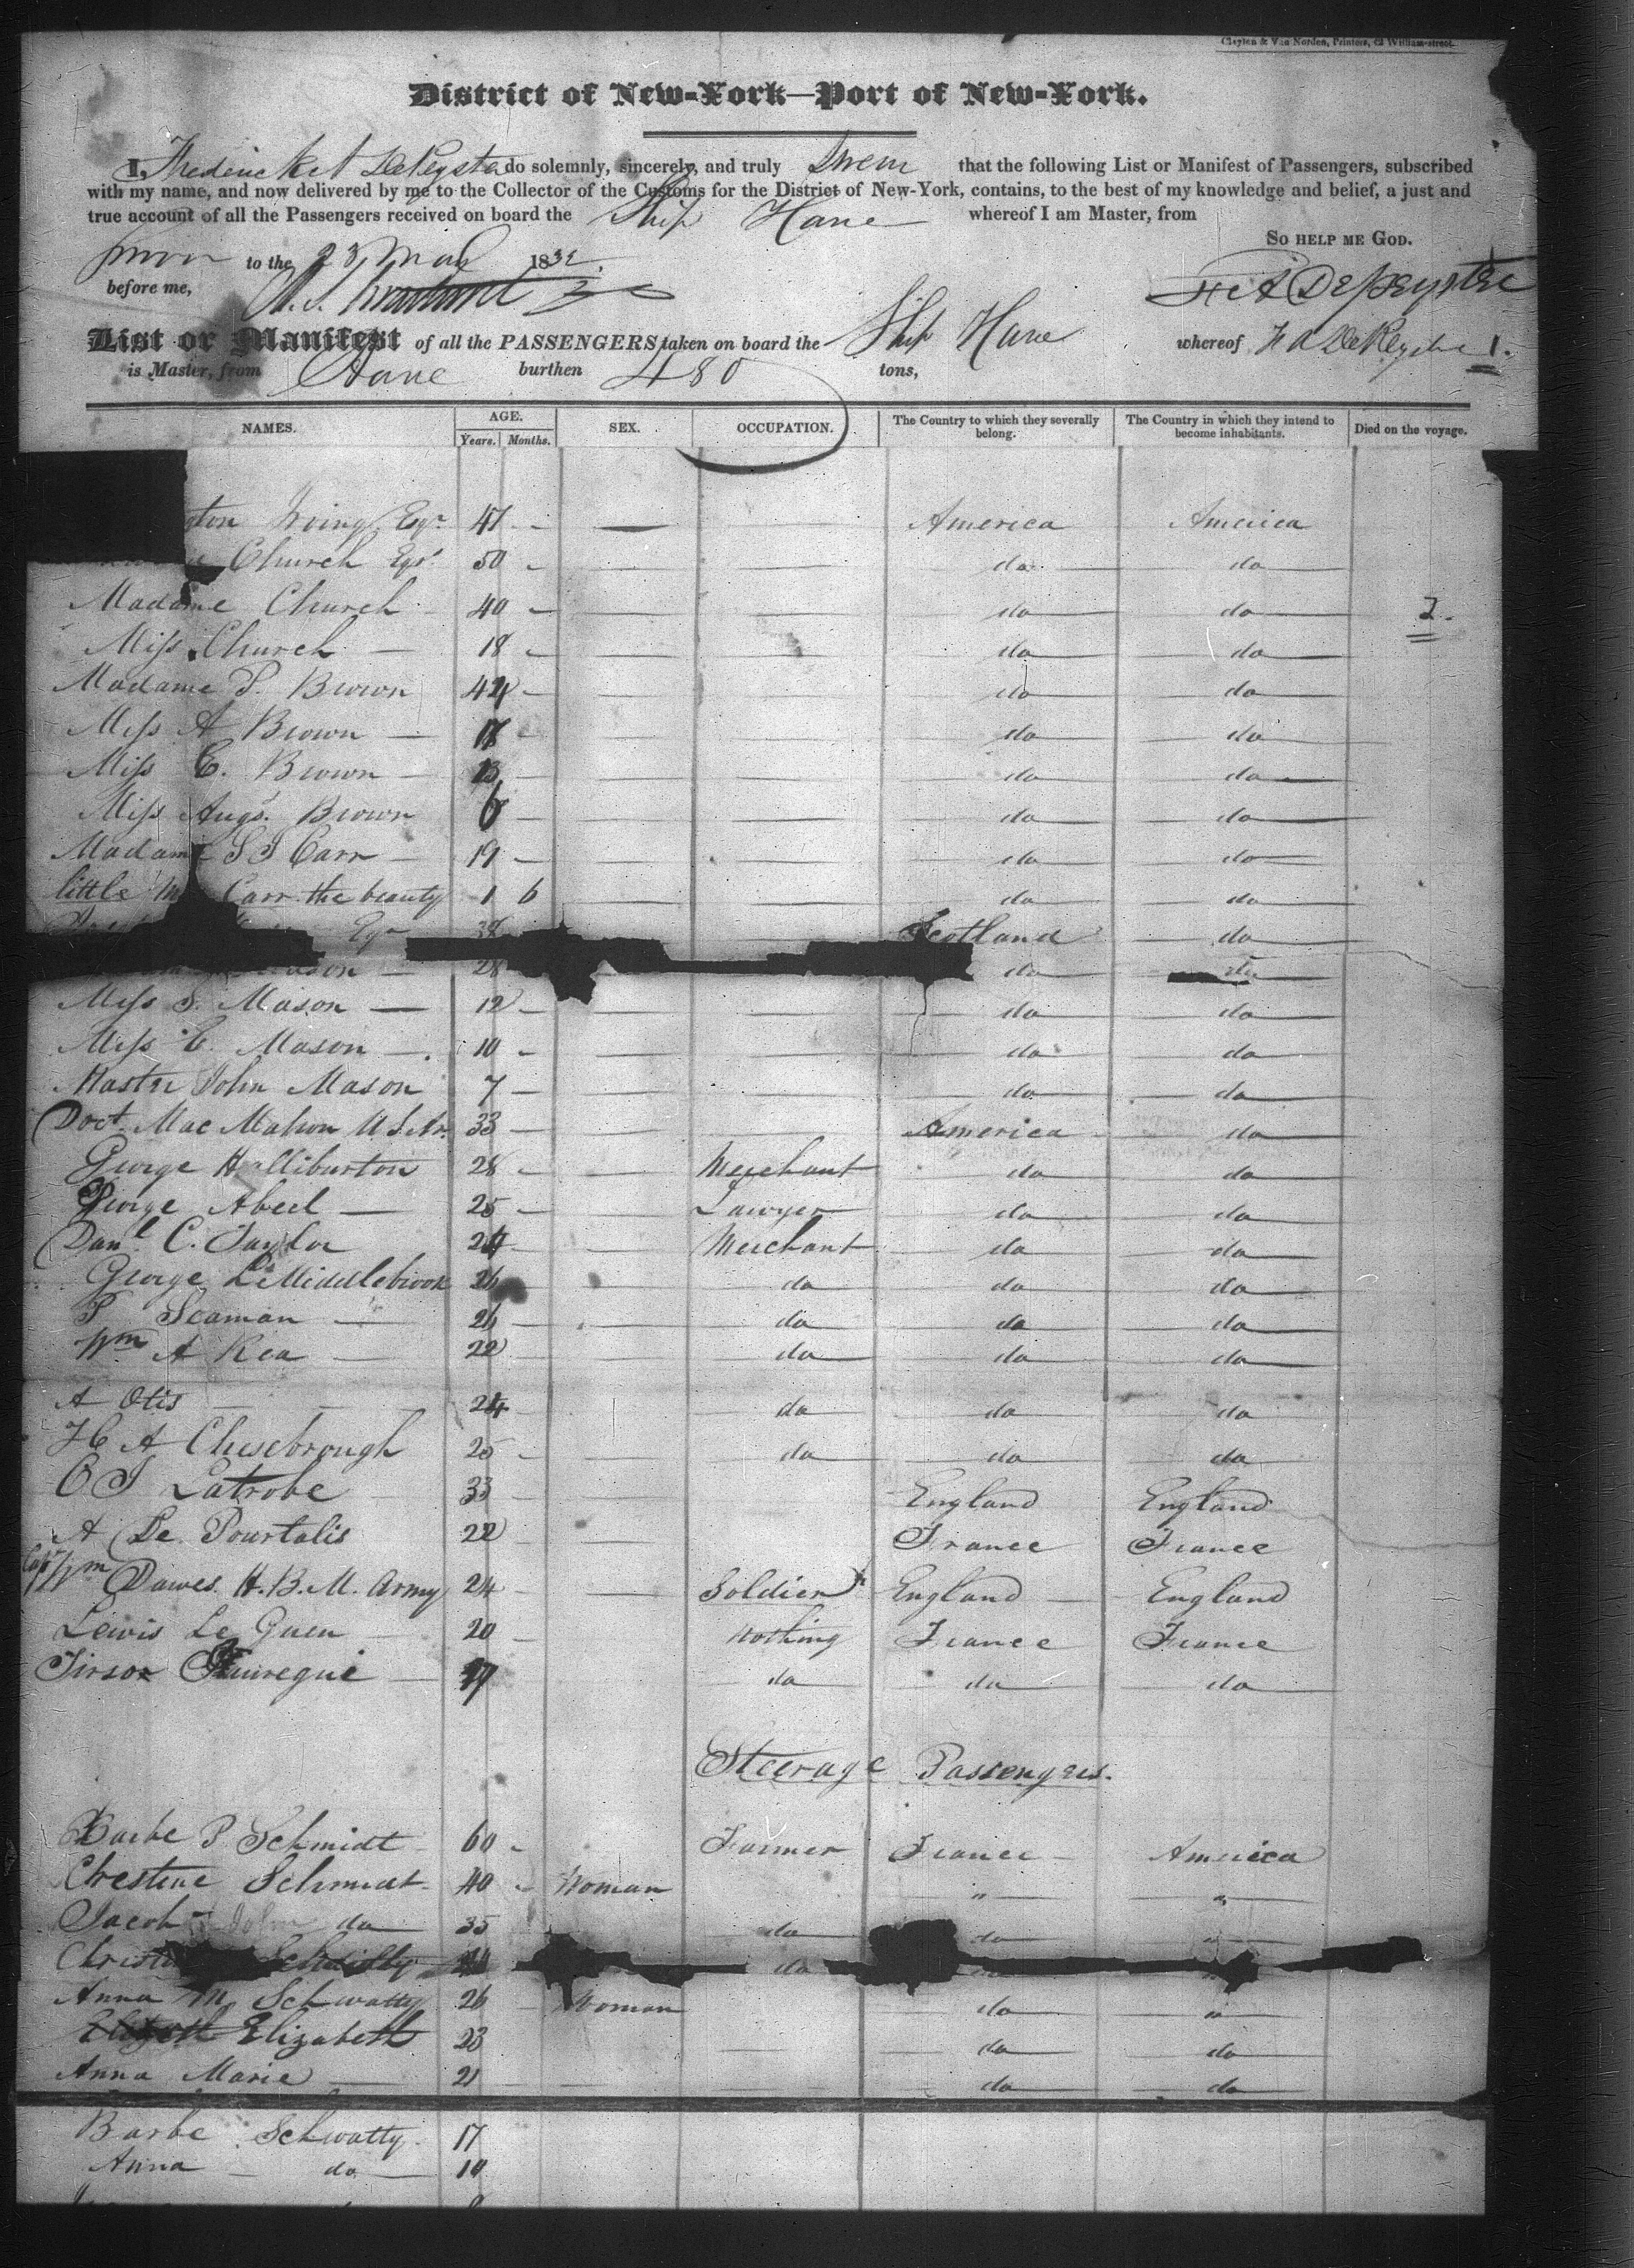 Clayton & Van Norden, Printers, 62 William-street.
District of New-York—Port of New-York.
I, Frederick A DePeyster do solemnly, sincerely, and truly Swear that the following List or Manifest of Passengers, subscribed
with my name, and now delivered by me to the Collector of the Customs for the District of New-York, contains, to the best of my knowledge and belief, a just and
true account of all the Passengers received on board the Ship Havre whereof I am Master, from
SO HELP ME GOD.
to the 23 May 1832.
before me,
F A DePeyster
List or Manifest of all the PASSENGERS taken on board the Ship Havre whereof F A DePeyster 1.
is Master, from Havre burthen 480 tons,
NAMES. AGE. Years. Months. SEX. OCCUPATION. The Country to which they severally belong. The Country in which they intend to become inhabitants. Died on the voyage.
gton Irving Eqr. 47 America America
Church Eqr. 50 do do
Madame Church 40 do do 2.
Miss Church 18 do do
Madame P. Brown 42 do do
Miss A Brown 17 do do
Miss C. Brown 13 do do
Miss Augs. Brown 6 do do
Madame S J Carr 19 do do
little M Carr the beauty 1 6 do do
Eqr 38 Scotland do
Mason 28 do do
Miss S. Mason 12 do do
Miss C. Mason 10 do do
Master John Mason 7 do do
Doct. Mac Mahon 33 America do
George Halliburton 28 Merchant do do
George Abeel 25 Lawyer do do
Danl. C. Taylor 24 Merchant do do
George L Middlebrook 26 do do do
P Seaman 26 do do do
Wm A Rea 22 do do do
A Otis 24 do do do
H A Chesebrough 25 do do do
C J Latrobe 33 England England
A De Pourtalis 22 France France
Capt Wm Dawes. H.B.M. Army 24 Soldier England England
Lewis Le Guen 20 Nothing France France
17 do do do
Steerage Passengers.
Barbe P Schmidt 60 Farmer France America
Chrestine Schmidt 40 Woman " "
Jacob John do 35 do do "
Christ do "
Anna M Schwatty 26 Woman do "
Elizabeth 23 do do
Anna Marie 21 do do
Barbe Schwatty 17
Anna do 14